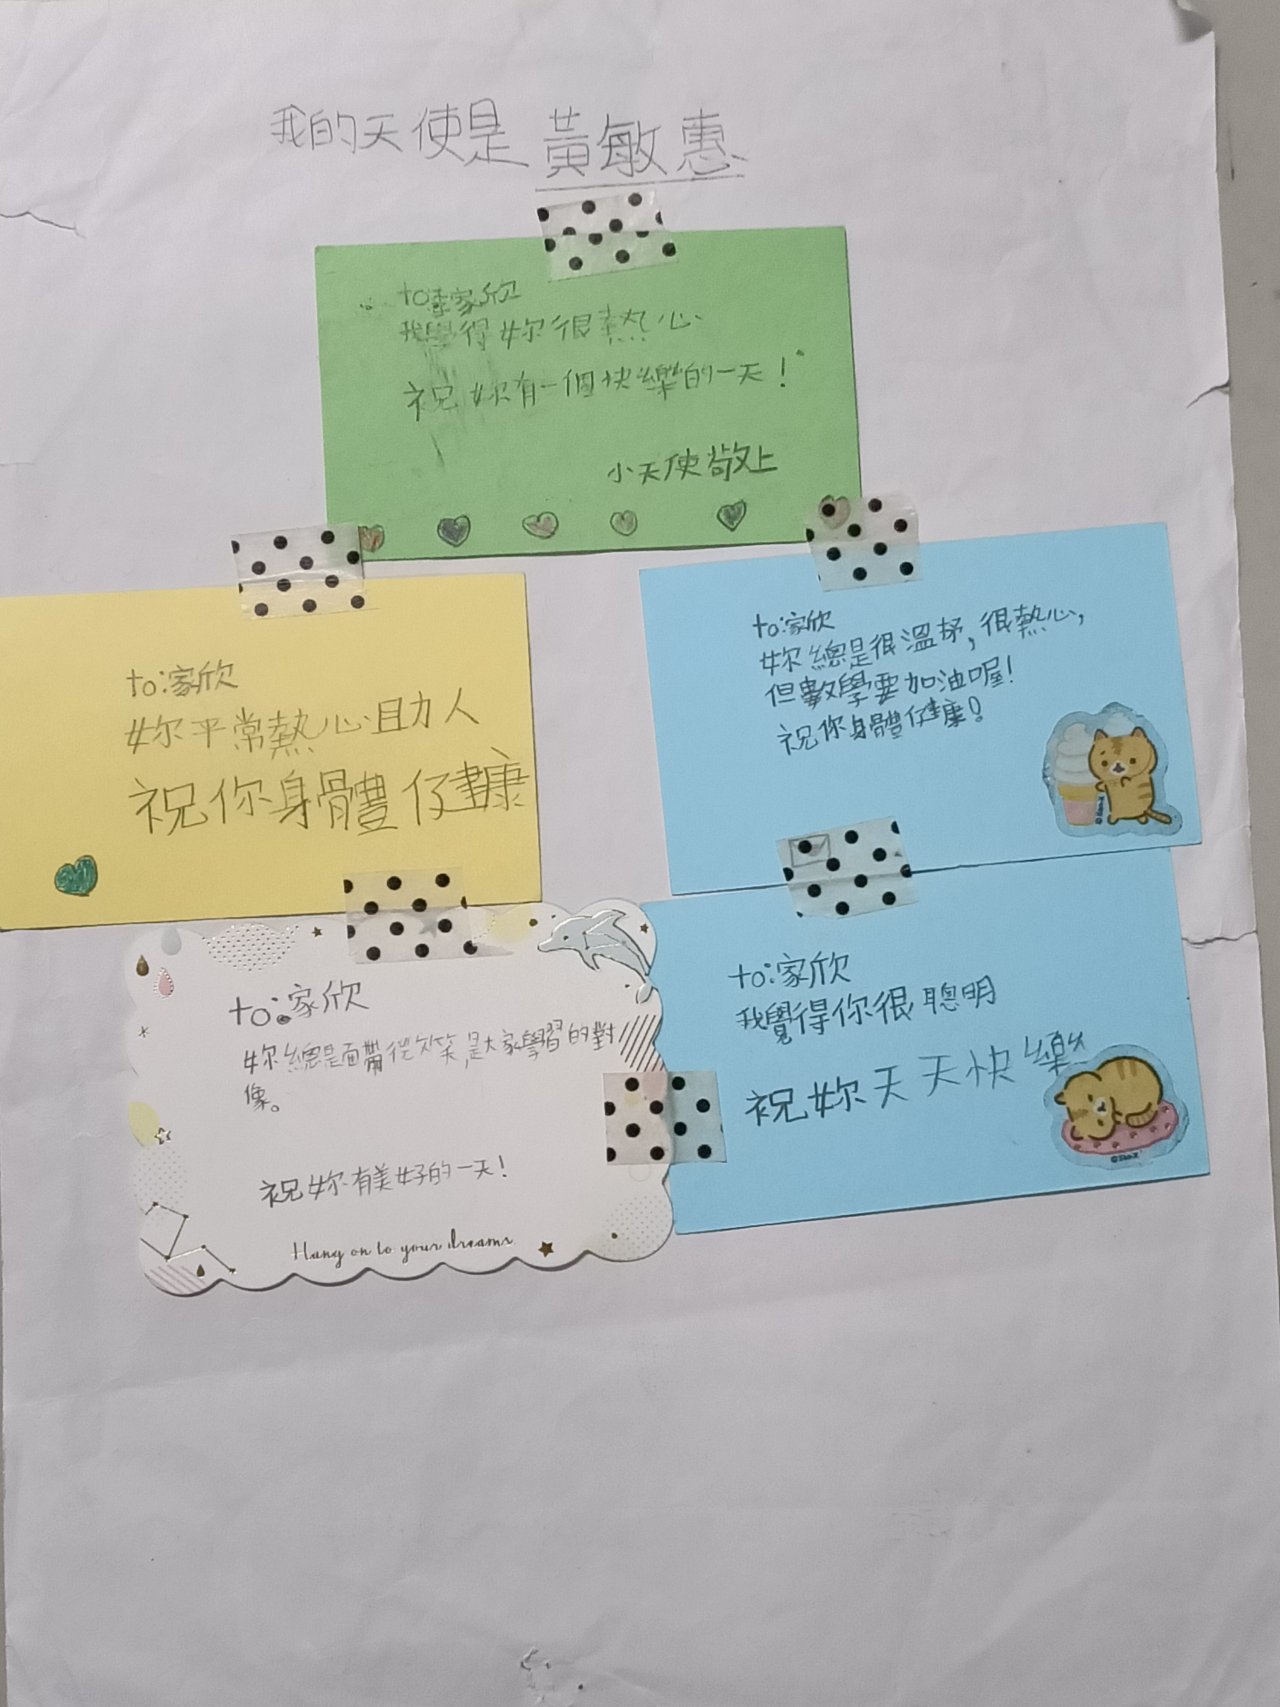 我的天使是黃敏惠
to:家欣
我覺得妳很熱心
祝妳有一個快樂的一天！
小天使敬上
to:家欣
妳平常熱心助人
祝你身體健康
to:家欣
妳總是很溫 ,很熱心,
但數學要加油喔！
祝你身體健康！
to:家欣
妳總是面帶 笑,是大家學習的對
像。
祝妳有美好的一天！
Hang on to your dreams
to:家欣
我覺得你很聰明
祝妳天天快樂